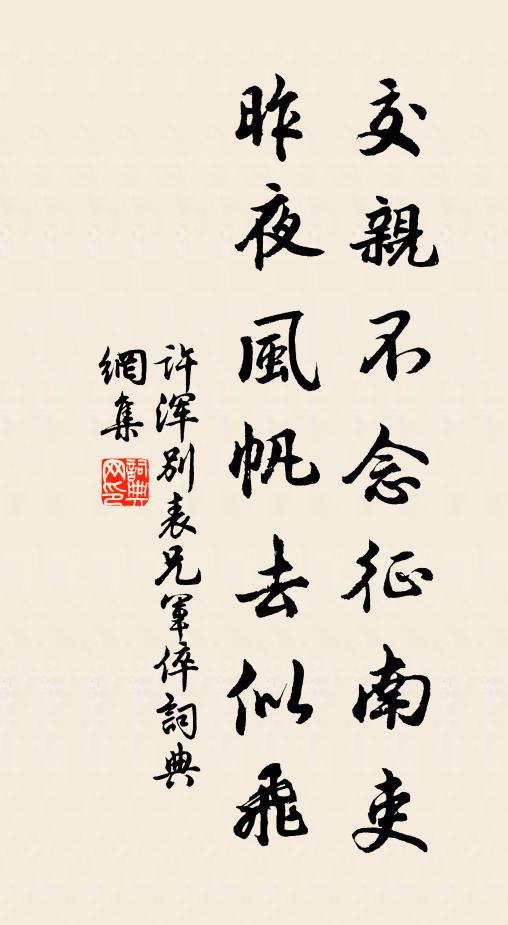 交親不念征南吏
昨夜風帆去似飛
许渾別表兄軍倅詞典
網集
詞典
网印